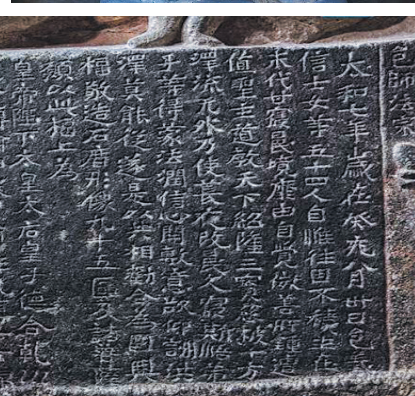 邑師法宗
太和七年歲在癸亥八月卅日邑義
信士女等五十四人自惟往因不積生在
末代甘寢昬境靡由自覺微善所鍾遭
值聖主道教天下紹隆三寶慈被十方
澤流无外乃使萇夜改昬久寢斯悟弟
子等得蒙法潤信心開敷意欲仰詶洪
澤莫能從遂是以共相勸合為國興
福敬造石廟形像九十五區及諸菩薩
願以此福上為
皇帝陛下太皇太后皇子德合乾